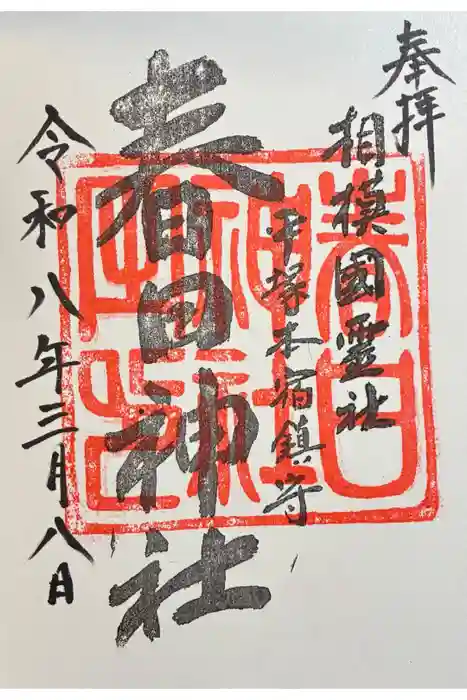 奉拝
相模國霊社
平塚本宿鎮守
春田神社
令和八年三月八日
春日神社之印